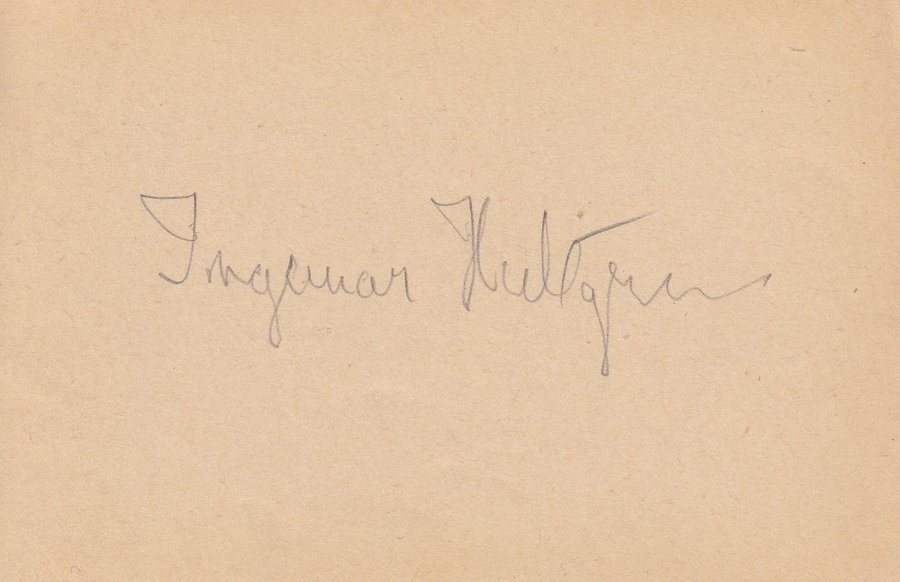 Ingemar Hultgren